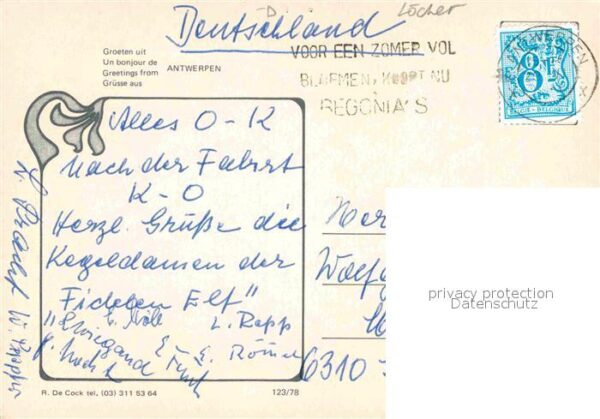 Deutschland
D
Löcher
Groeten uit
Un bonjour de
Greetings from
Grüsse aus
ANTWERPEN
VOOR EEN ZOMER VOL
BLOEMEN, KOOPT NU
BEGONIA'S
ANTWERPEN
X
8F
BELGIË - BELGIQUE
Alles O-K
Nach der Fahrt
K-O
Herzl. Grüße die
Kegeldamen der
"Fidelen Elf"
L. Rapp
E. Römer
Wolfg
6310
privacy protection
Datenschutz
R. De Cock tel, (03) 311 53 64
123/78